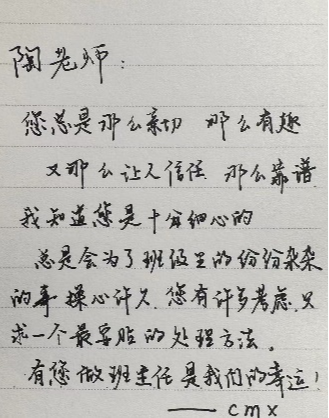 陶老师：
您总是那么亲切 那么有趣
又那么让人信任 那么靠谱
我知道您是十分细心的
总是会为了班级里的纷纷杂杂
的事操心许久.您有许多考虑.只
求一个最妥贴的处理方法。
有您做班主任是我们的幸运！
——cmx